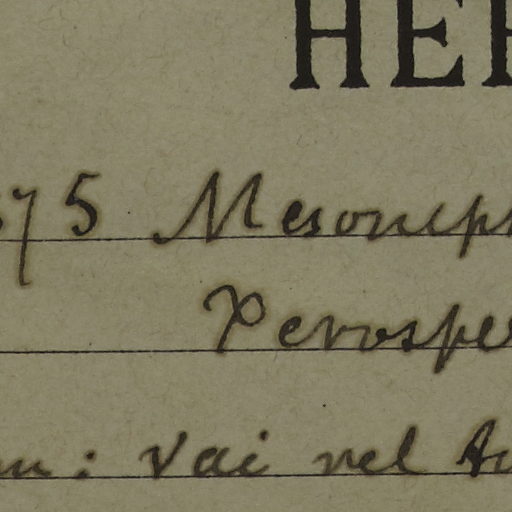 HE
75 Mesoneph
Perospe
: Vai vel